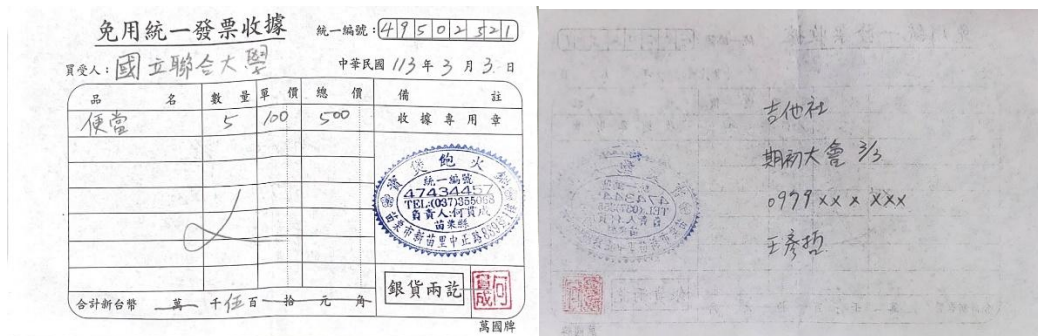 免用統一發票收據
統一編號:49502521
買受人:國立聯合大學
中華民國 113年 3 月 3 日
品名 數量 單價 總價 備註
便當 5 100 500 收據專用章
統一編號
47434457
TEL:(037)355068
負責人:何貫成
苗栗縣
苗栗市新苗里中正路839號
銀貨兩訖
合計新台幣 萬 千伍百 拾 元 角
萬國牌
吉他社
期初大會 3/3
0979 xx x xxx
王彥哲